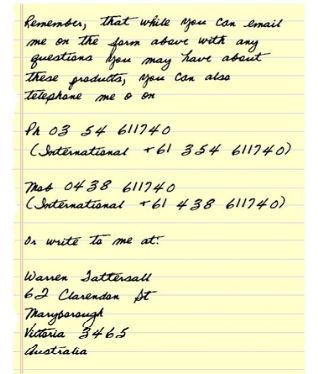 Remember, that while you can email
me on the form above with any
questions you may have about
these products, you can also
telephone me o on
Ph 03 54 611740
(International +61 354 611740)
Mob 0438 611740
(International +61 438 611740)
Or write to me at:
Warren Tattersall
62 Clarendon St
Maryborough
Victoria 3465
Australia